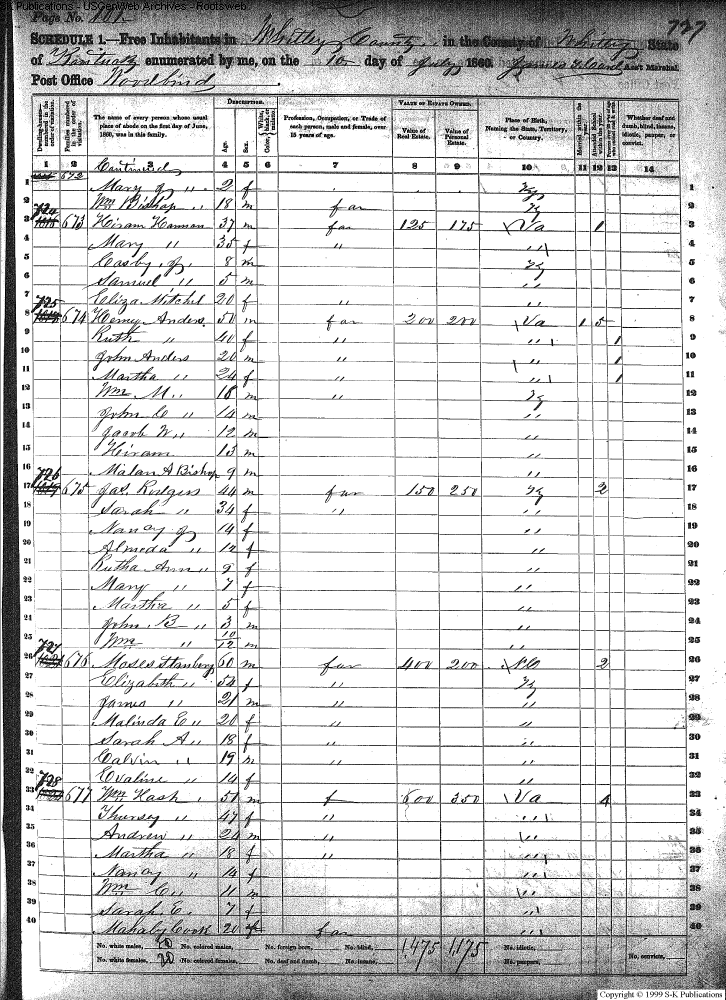 S-K Publications - USGenWeb Archives - Rootsweb
Page No. 101
727
SCHEDULE 1.—Free Inhabitants in Whitley County in the County of Whitley State
of Kentucky enumerated by me, on the 10 day of July, 1860. Ass't Marshal.
Post Office Woodbind
DESCRIPTION. VALUE OF ESTATE OWNED.
Dwelling-houses—numbered in the order of visitation. Families numbered in the order of visitation. The name of every person whose usual place of abode on the first day of June, 1860, was in this family. Age. Sex. Color, White, black, or mulatto. Profession, Occupation, or Trade of each person, male and female, over 15 years of age. Value of Real Estate. Value of Personal Estate. Place of Birth, Naming the State, Territory, or Country. Married within the year. Attended School within the year. Whether deaf and dumb, blind, insane, idiotic, pauper, or convict.
1 2 3 4 5 6 7 8 9 10 11 12 13 14
672 Continued
1 Mary J " 2 f Ky 1
2 Wm Bishop " 18 m far Ky 2
3 724 673 Hiram Harman 37 m far 125 175 Va 1 3
4 Mary " 35 f " " 4
5 Casby J 8 m Ky 5
6 Samuel " 5 m " 6
7 Eliza Mitchel 20 f " " 7
8 725 674 Henry Anders 50 m far 200 200 Va 1 5 8
9 Ruth " 40 f " " 1 9
10 John Anders 20 m " " 1 10
11 Martha " 24 f " " 1 11
12 Wm M " 16 m " Ky 12
13 John C " 14 m " 13
14 Jacob W " 12 m " 14
15 Hiram 13 m " 15
16 Malan A Bishop 9 m " 16
17 726 675 Jas. Rodgers 44 m far 150 250 Ky 2 17
18 Sarah " 34 f " " 18
19 Nancy J 14 f " 19
20 Almeda " 12 f " 20
21 Rutha Ann " 9 f " 21
22 Mary " 7 f " 22
23 Martha " 5 f " 23
24 John B " 3 m " 24
25 Wm " 10/12 m " 25
26 727 676 Moses Stanbery 60 m far 400 200 NC 2 26
27 Elizabeth " 54 f " Ky 27
28 James " 21 m " " 28
29 Malinda E " 20 f " " 29
30 Sarah A " 18 f " " 30
31 Calvin " 19 m " " 31
32 Evaline " 14 f " 32
33 728 677 Wm Hash 51 m f 600 350 Va 4 33
34 Thursey " 47 f " " 34
35 Andrew " 24 m " " 35
36 Martha " 18 f " " 36
37 Nancy " 14 f " 37
38 Wm C " 11 m " 38
39 Sarah E. 7 f " 39
40 Mahaby Cook 20 f far " 40
No. white males, 20 No. colored males, No. foreign born, No. blind, 1,475 1,175 No. idiotic,
No. white females, 20 No. colored females, No. deaf and dumb, No. insane, No. paupers, No. convicts,
Copyright © 1999 S-K Publications